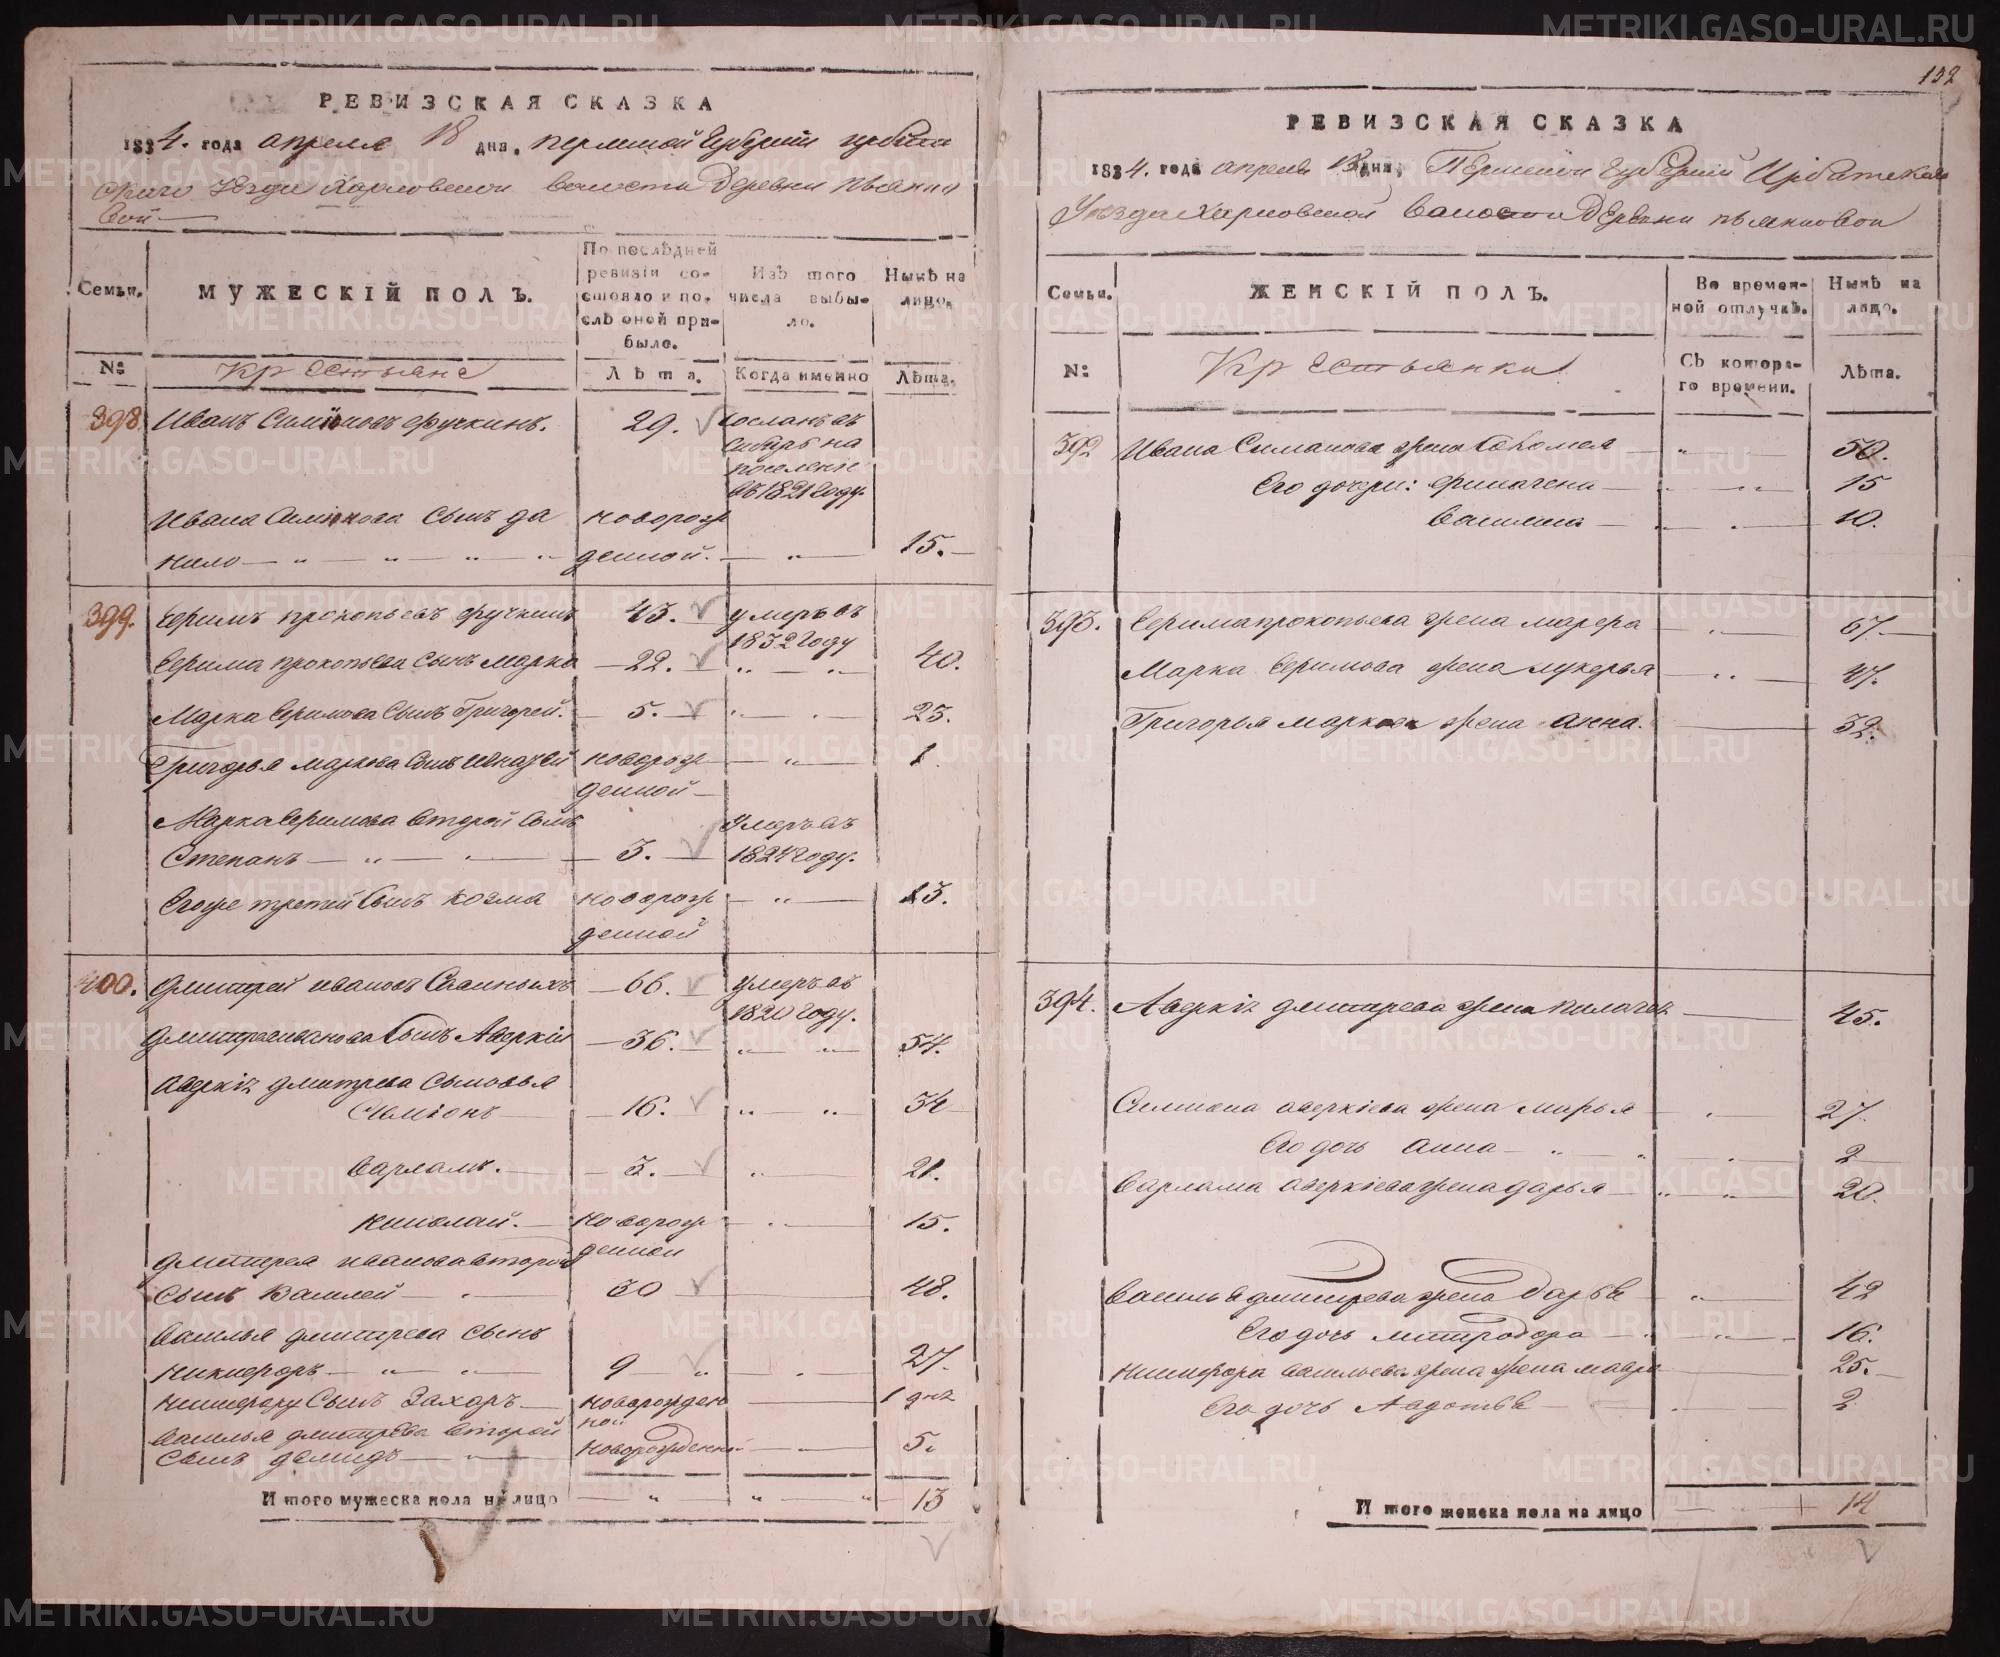 132
РЕВИЗСКАЯ СКАЗКА
1834. года апреля 18 дня, пермской губернии ирбит
скаго уезда Харловской волости деревни пьянко
вой
Семьи.
МУЖЕСКІЙ ПОЛЪ.
По послѣдней ревизіи состояло и послѣ оной прибыло.
Изъ того числа выбыло.
Нынѣ на лицо.
№
Крестьяне
Лѣта.
Когда именно
Лѣта.
398 Иванъ Симионовъ Фучкинъ. 29. сосланъ въ
Сибирь на
поселение
въ 1821 году.
Ивана Симионова сынъ да новорож
нило денной. 15.
399. Ефимъ прокопьевъ Фучкинъ 43. умеръ въ
1832 году
Ефима прокопьева сынъ Марко 22. 40.
Марка Ефимова сынъ Григорей. 5. 23.
Григорья маркова сынъ новорож 1
денной
Марка Ефимова второй сынъ умеръ въ
Степанъ 3. 1824 году.
Егоже третей сынъ козма новорож 13.
денной
400. Дмитрей ивановъ 66. умеръ въ
1820 году.
Дмитрея иванова сынъ Аверкій 36. 54.
Аверкія дмитрева сыновья
Симионъ 16. 34
Варламъ. 3. 21.
Николай. новорож 15.
денной
Дмитрея иванова второй
сынъ Василей 30 48.
Василья дмитрева сынъ
Никифоръ 9 27.
Никифора сынъ Захаръ новорожден 1 дня
ной
Василья дмитрева второй
сынъ демидъ новорожденный 5.
Итого мужеска пола на лицо 13
РЕВИЗСКАЯ СКАЗКА
1834. года апреля 18 дня, Пермской губернии Ирбитскаго
Уезда Харловской волости деревни пьянковой
Семьи.
ЖЕНСКІЙ ПОЛЪ.
Во временной отлучкѣ.
Нынѣ на лицо.
№
Крестьянки
Съ котораго времени.
Лѣта.
392 Ивана Симанова жена 50.
Его дочери: 15
Василиса 10.
393. Ефима прокопьева жена марфа 67.
Марка Ефимова жена лукерья 47.
Григорья маркова жена анна. 32.
394. Аверкія дмитрева жена 45.
Симиона аверкіева жена марья 27.
Его дочь анна 2
Варлама аверкіева жена дарья 20.
Василья дмитрева жена Дарья 42
Его дочь митродора 16.
Никифора васильева жена жена мавра 25.
Его дочь Авдотья 2
Итого женска пола на лицо 14
METRIKI.GASO-URAL.RU